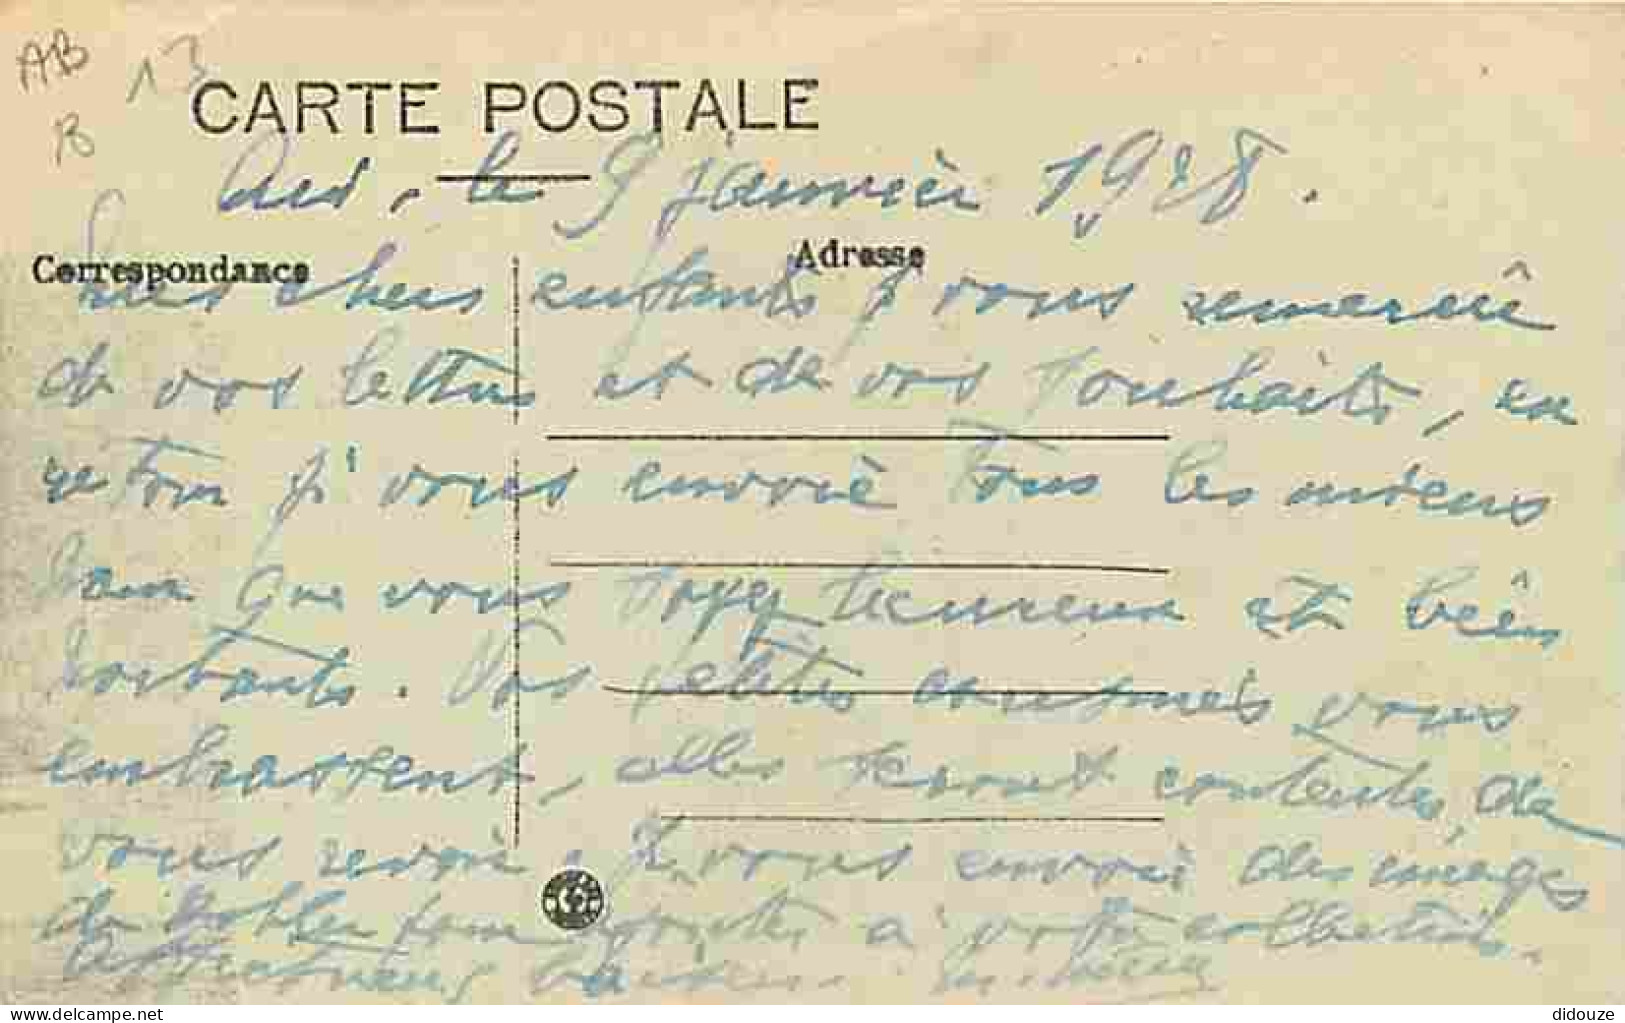 AB 13
B
CARTE POSTALE
le 9 janvier 1928.
Correspondance
Adresse
mes chers enfants j vous remercie
de vos lettres et de vos souhaits, en
retour j' vous envoiè tous les miens
que vous soyez heureux et bèin
portants. Vos petites cousines vous
embrassent, elles seront contentes, de
vous revoir. J vous envoie des images
de pour ajouter a votre collection.
affectueux baisers.
delcampe.net
didouze